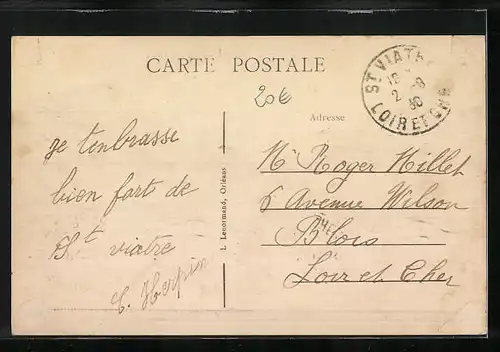 CARTE POSTALE
ST VIATRE
18
2 - 8
36
LOIR ET CHER
20€
Adresse
je tenbrasse
bien fort de
St viatre
C. Herpin
L. Lenormand, Orléans
Mr Roger Millet
6 Avenue Wilson
Blois
Loir et Cher